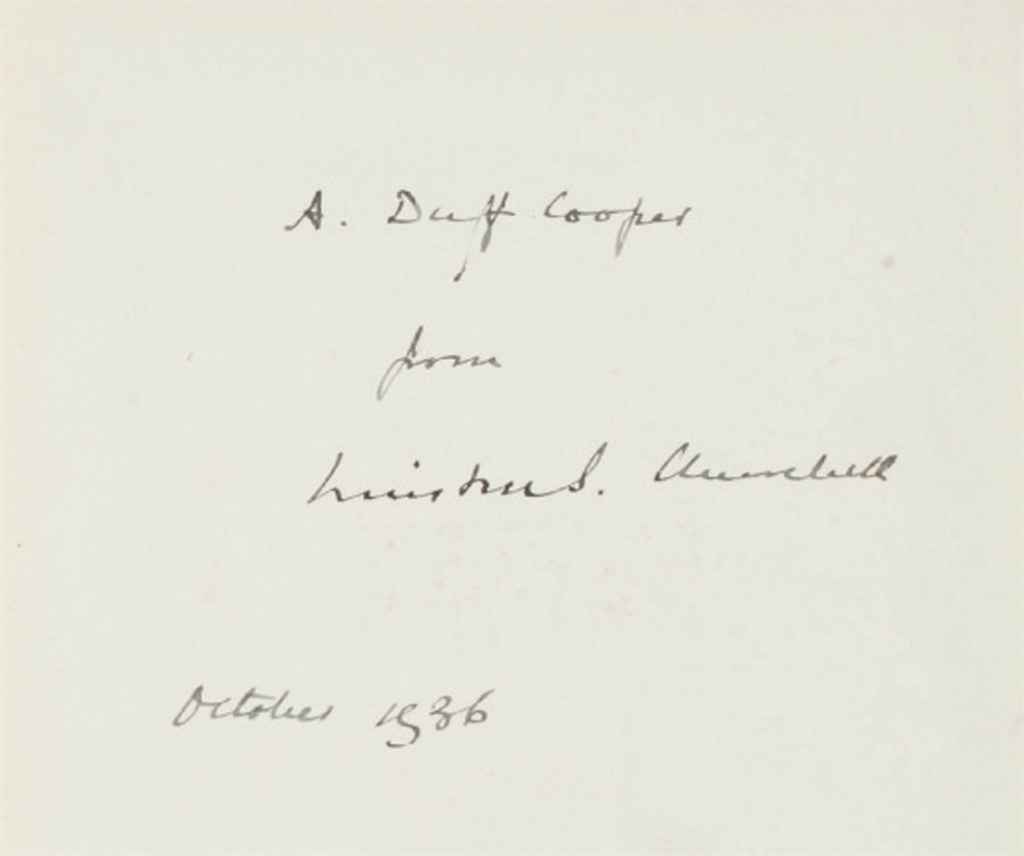 A. Duff Cooper
from
Winston S. Churchill
October 1936